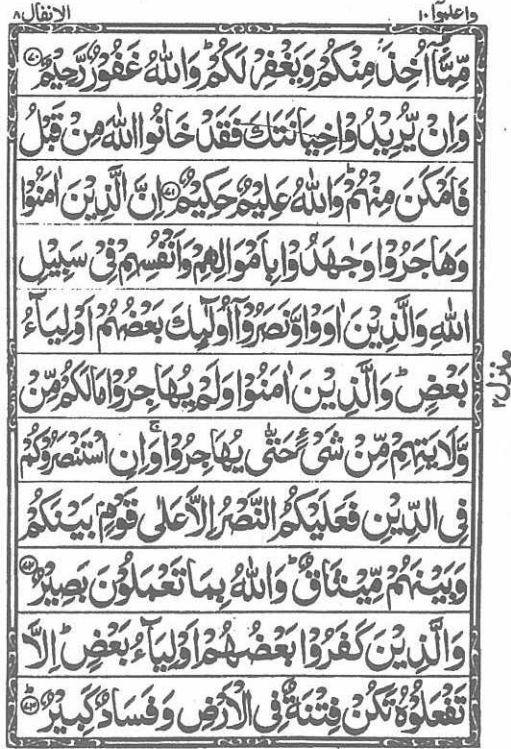 واعلموا ١٠
الانفال ٨
مِّمَّآ اُخِذَ مِنْكُمْ وَيَغْفِرْ لَكُمْ ؕ وَاللّٰهُ غَفُوْرٌ رَّحِيْمٌ ﴿۷۰﴾
وَاِنْ يُّرِيْدُوْا خِيَانَتَكَ فَقَدْ خَانُوا اللّٰهَ مِنْ قَبْلُ
فَاَمْكَنَ مِنْهُمْ ؕ وَاللّٰهُ عَلِيْمٌ حَكِيْمٌ ﴿۷۱﴾ اِنَّ الَّذِيْنَ اٰمَنُوْا
وَهَاجَرُوْا وَجٰهَدُوْا بِاَمْوَالِهِمْ وَاَنْفُسِهِمْ فِيْ سَبِيْلِ
اللّٰهِ وَالَّذِيْنَ اٰوَوْا وَّنَصَرُوْٓا اُولٰٓئِكَ بَعْضُهُمْ اَوْلِيَآءُ
بَعْضٍ ؕ وَالَّذِيْنَ اٰمَنُوْا وَلَمْ يُهَاجِرُوْا مَا لَكُمْ مِّنْ
وَّلَايَتِهِمْ مِّنْ شَيْءٍ حَتّٰى يُهَاجِرُوْا ۚ وَاِنِ اسْتَنْصَرُوْكُمْ
فِي الدِّيْنِ فَعَلَيْكُمُ النَّصْرُ اِلَّا عَلٰى قَوْمٍۭ بَيْنَكُمْ
وَبَيْنَهُمْ مِّيْثَاقٌ ؕ وَاللّٰهُ بِمَا تَعْمَلُوْنَ بَصِيْرٌ ﴿۷۲﴾
وَالَّذِيْنَ كَفَرُوْا بَعْضُهُمْ اَوْلِيَآءُ بَعْضٍ ؕ اِلَّا
تَفْعَلُوْهُ تَكُنْ فِتْنَةٌ فِي الْاَرْضِ وَفَسَادٌ كَبِيْرٌ ﴿۷۳﴾
منزل ٢